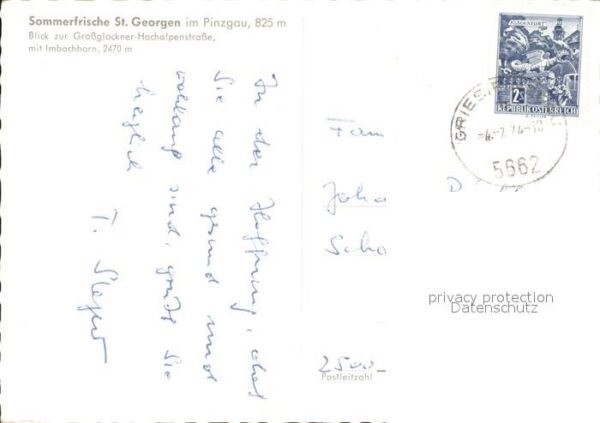 Sommerfrische St. Georgen im Pinzgau, 825 m
Blick zur Großglockner-Hochalpenstraße,
mit Imbachhorn, 2470 m
In der Hoffnung, daß
Sie alle gesund und
wohlauf sind, grüßt Sie
herzlich
T.
KLAGENFURT
2S
REPUBLIK ÖSTERREICH
GRIES
5662
Fam
Joha
Scho
privacy protection
Datenschutz
2500
Postleitzahl